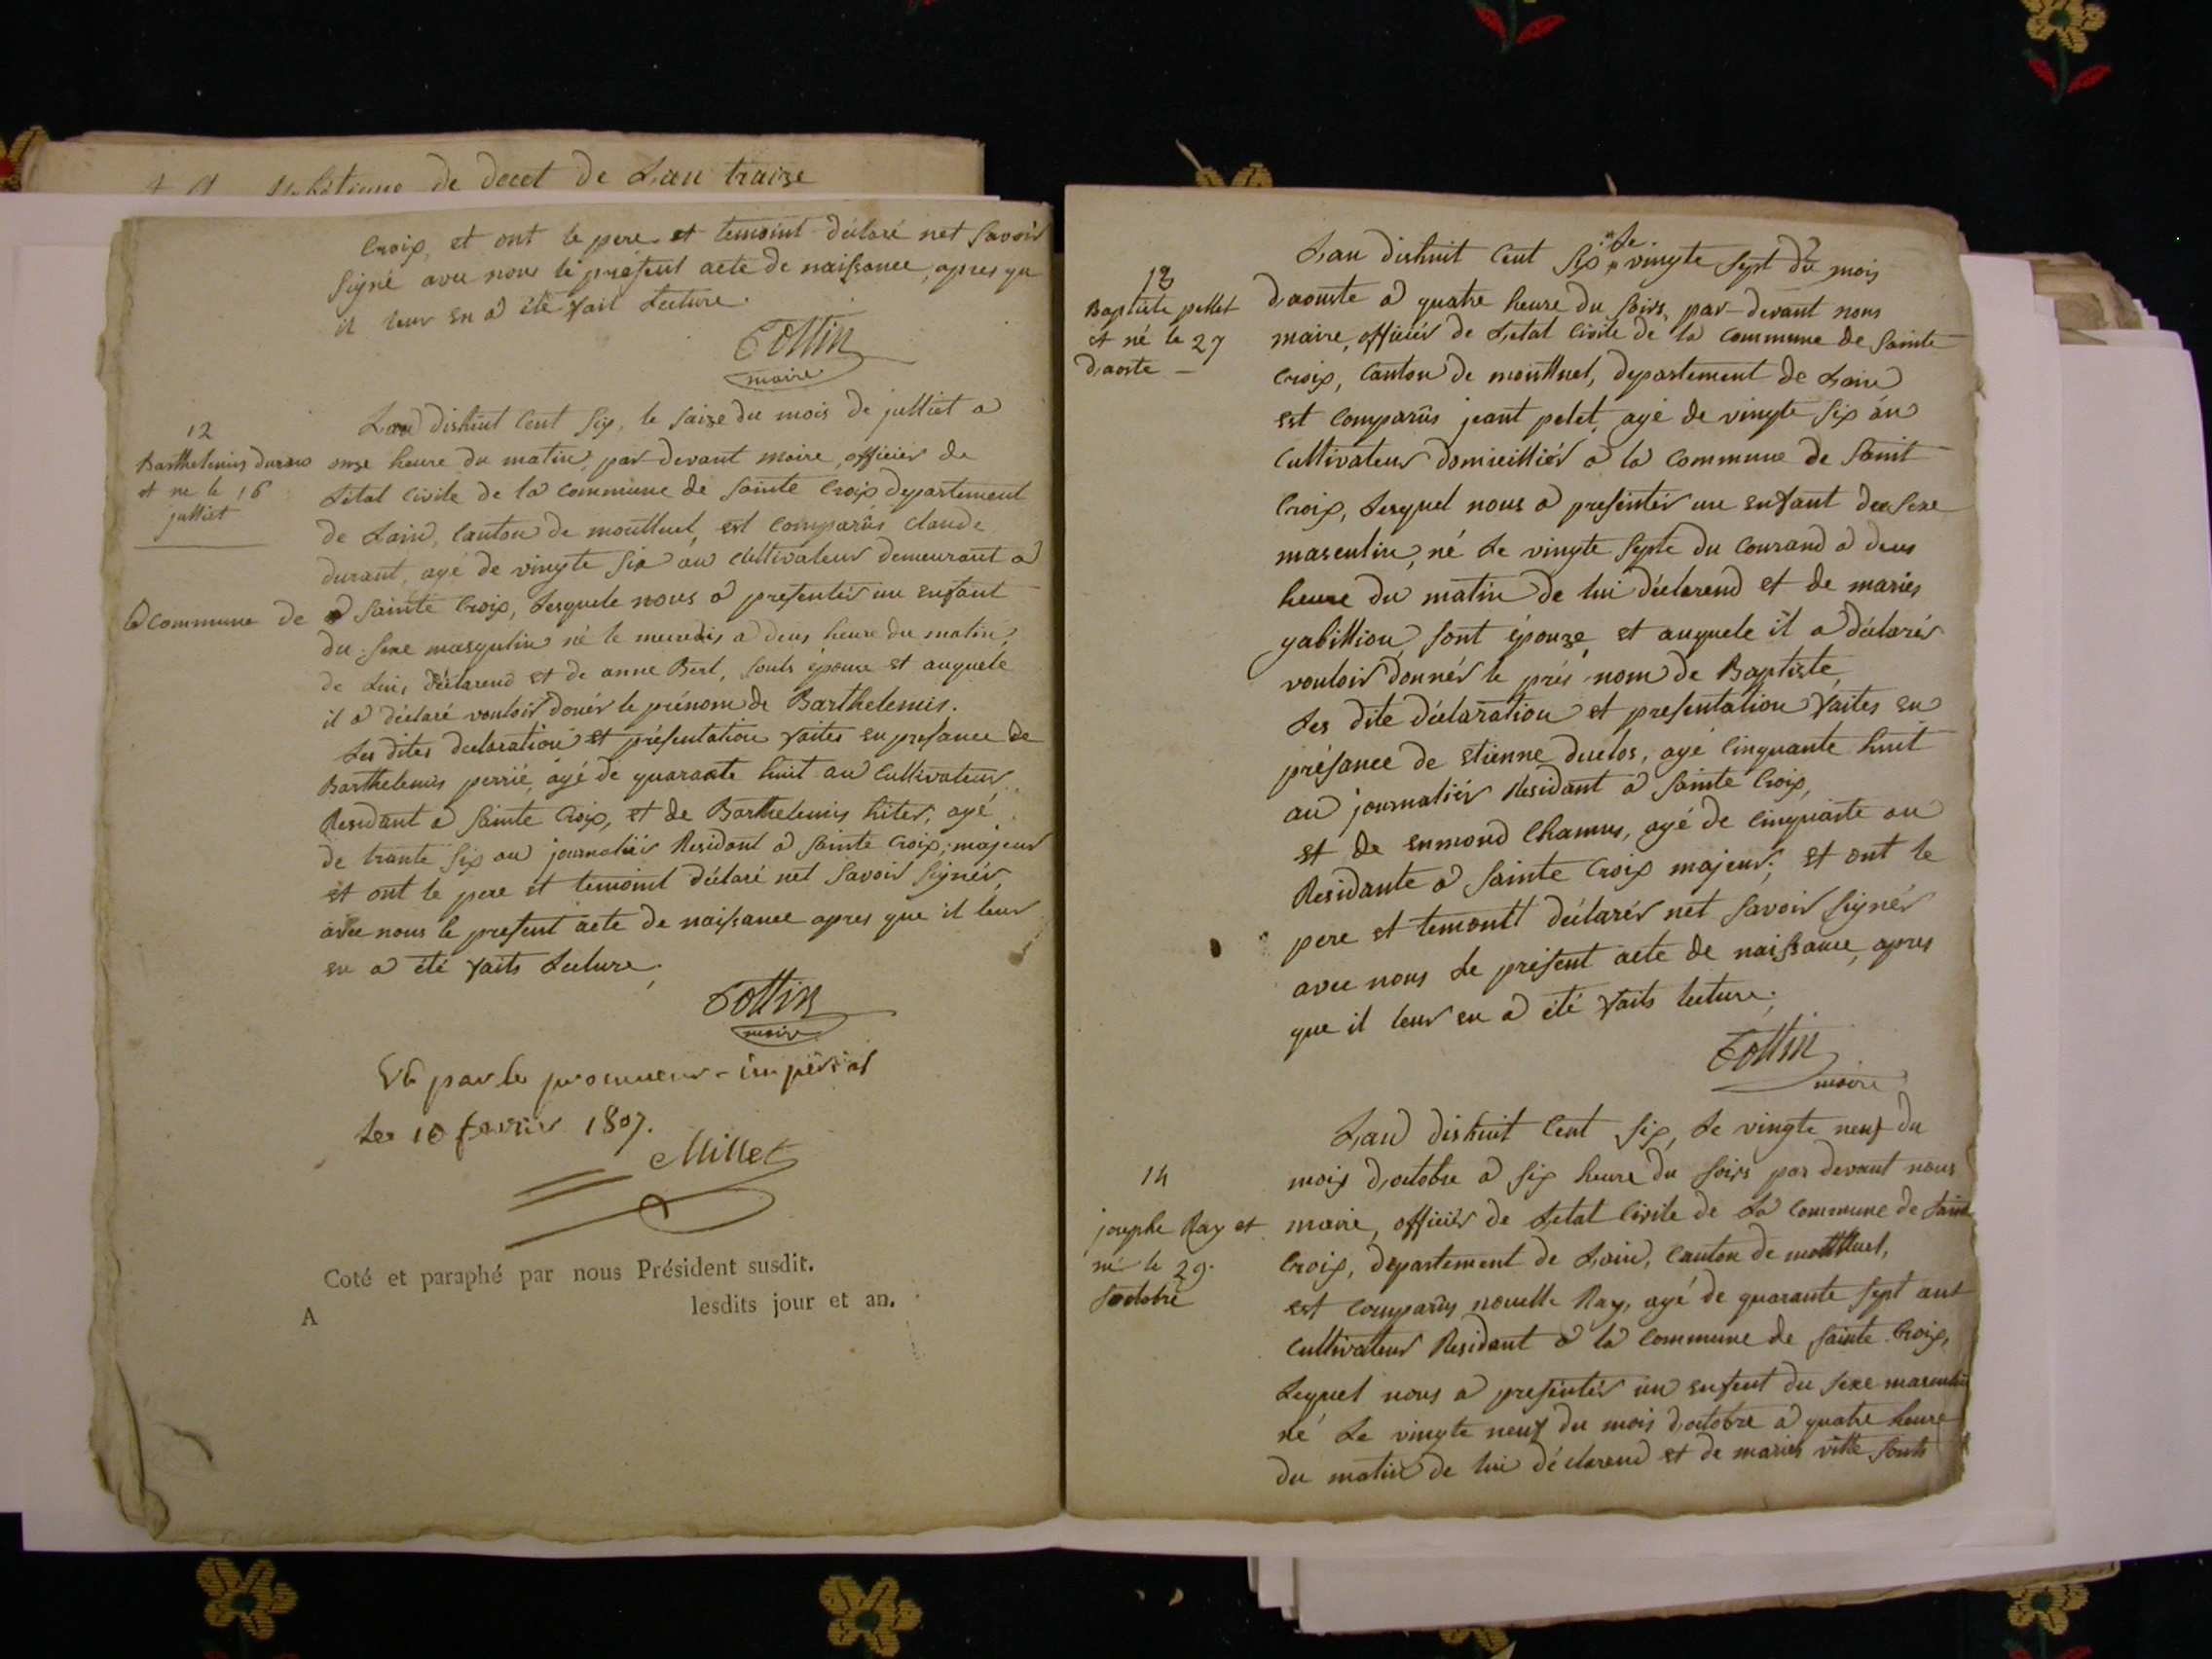 de decet de Lan traize
Croix, et ont le pere et temoint déclaré net savoir
signé avec nous le présent acte de naissance, apres qu
il leur en a été fait lecture.
Cottin
maire
12
Barthelemis durans
et ne le 16
julliet
Lan dishuit cent six, le saize du mois de julliet a
onze heure du matin, par devant maire, officier de
Létat civile de la commune de Sainte Croix departement
de Lain, canton de montluel, est comparûs claude
durant, agé de vingte six an cultivateur demeurant a
la commune de a Sainte Croix, Lesquele nous a presentér un enfant
du sexe masqulin né le mecredis a deus heure du matin,
de Lui, déclarend et de anne Berl, sonts épouse et auquele
il a déclaré vouloir donér le prénom de Barthelemis.
Les dites declaration et présentation faites en presance de
Barthelemis perrié, agé de quarante huit an cultivateur
Residant a Sainte Croix, et de Barthelemis hiter, agé
de trante six an journaliér Residant a Sainte Croix, majeur
et ont le pere et temoint déclaré net savoir signér,
avec nous le present acte de naissance apres que il leur
en a été faits Lecture.
Cottin
maire
Vû par le procureur impérial
Le 10 fevrier 1807.
Millet
Coté et paraphé par nous Président susdit.
A lesdits jour et an.
13
Baptiste pellet
et né le 27
d,aoste
Lan dishuit cent six le vingte sept du mois
d,aouste a quatre heure du soirs, par devant nous
maire, officiér de Létat civile de la commune de Sainte
Croix, canton de montluel, departement de Lain
est comparûs jeant pelet, agé de vingte six an
cultivateur domicilliér a la commune de Saint
Croix, Lesquel nous a presentér un enfant deu sexe
masculin, né Le vingte septe du courand a deus
heure du matin de lui déclarend et de maries
gabillion, sont épouze, et auquele il a déclarér
vouloir donnér le pré nom de Baptiste,
Les dite déclaration et presentation faites en
présance de Etienne duclos, agé cinquante huit
an journaliér Residant a Sainte Croix,
et de enmond Chamus, agé de cinquante an
Residante a Sainte Croix majeur, et ont le
pere et temontt déclarér net savoir signér
avec nous Le présent acte de naissance, apres
que il leur en a été faits lecture.
Cottin
maire
14
josephe Ray et
né le 29
d'octobre
Lan dishuit cent six, Le vingte neuf du
mois d,octobre a six heure du soirs par devant nous
maire, officiér de Létat civile de La commune de Saint
Croix, departement de Lain, canton de montluel,
est comparûs nouelle Ray, agé de quarante sept ant
cultivateur Residant a la commune de Sainte Croix,
Lequel nous a presentér un enfent du sexe masculin
né Le vingte neuf du mois d,octobre a quatre heure
du matin de lui déclarend et de maries vitte sonts